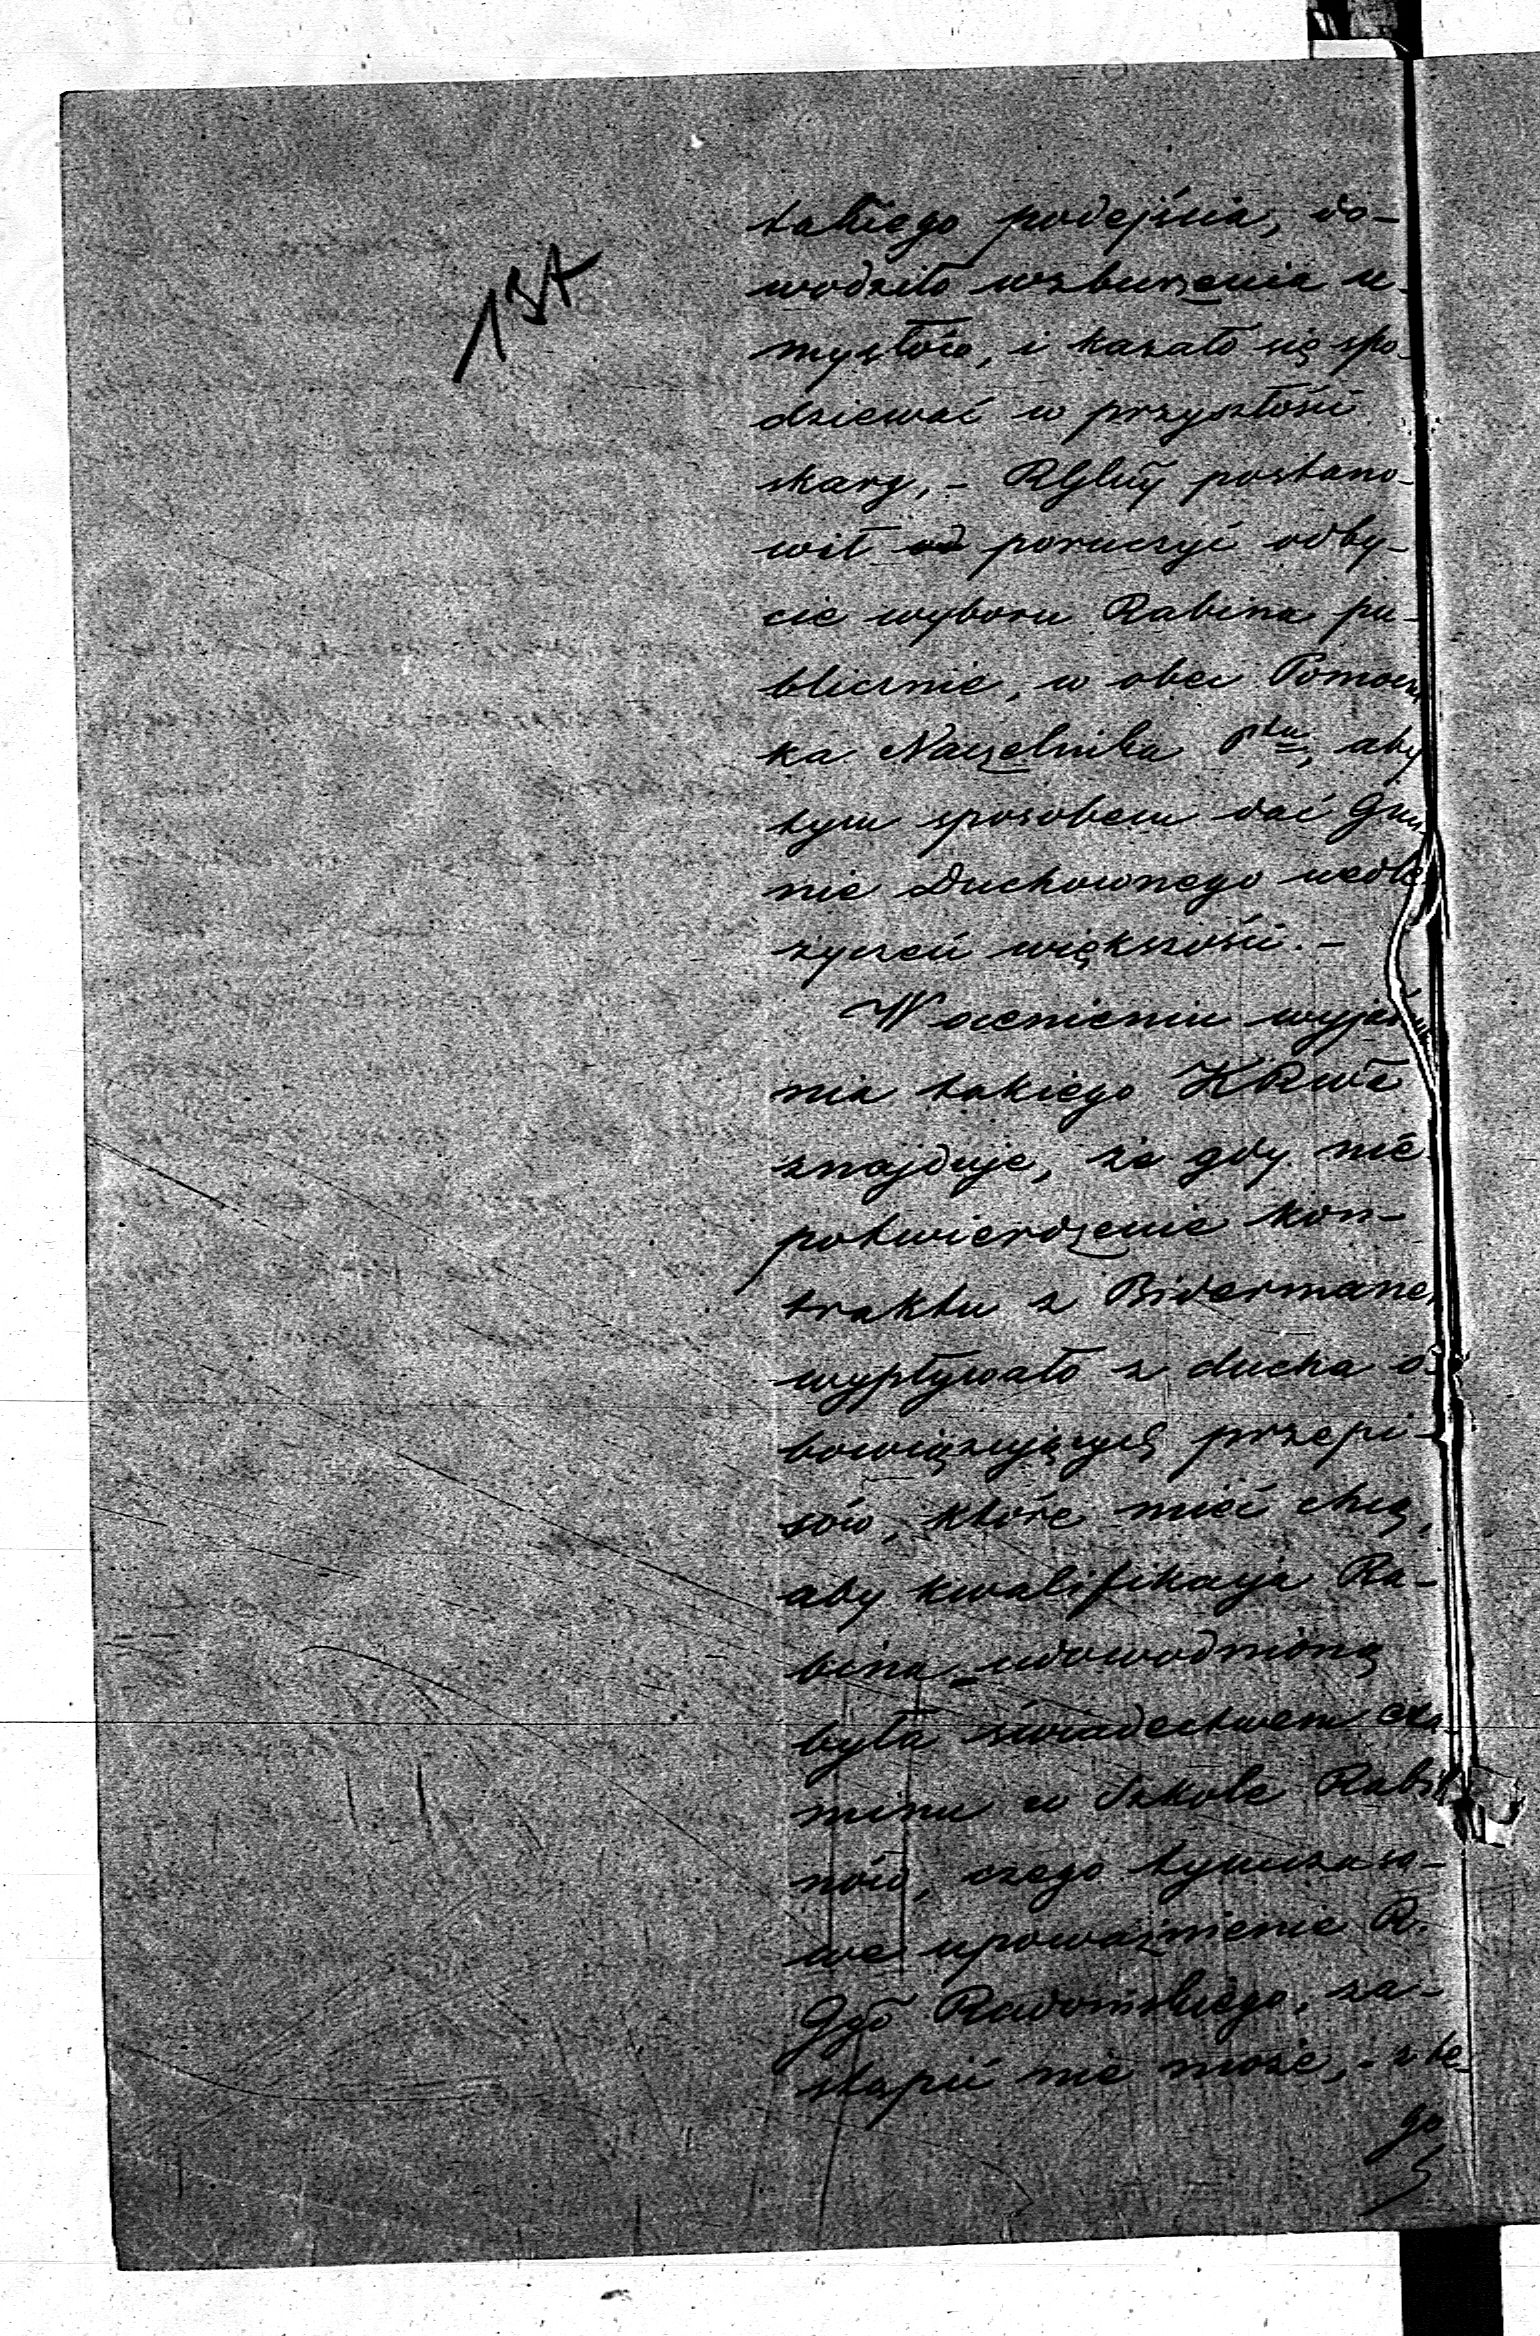 137
takiego podejścia, do-
wodziło wzburzenia u-
mysłów, i kazało się spo-
dziewać w przyszłości
skarg, - RGlny postano-
wił poruczyć odby-
cie wyboru Rabina pu-
blicznie, w obec Pomocni
ka Naczelnika Ptu, aby
tym sposobem dać Gmi
nie Duchownego wedle
życzeń większości. -
W ocenieniu wyjaśnie
nia takiego KRwa
znajduje, że gdy nie
potwierdzenie kon-
traktu z Bidermanem
wypływało z ducha o-
bowiązujących przepi-
sów, które mieć chcą,
aby kwalifikacja Ra-
bina udowodnioną
była świadectwem exa-
minu w Szkole Rabi
nów, czego tymczaso-
we upoważnienie R.
Ggo Radomskiego, za-
stąpić nie może, - z te-
go